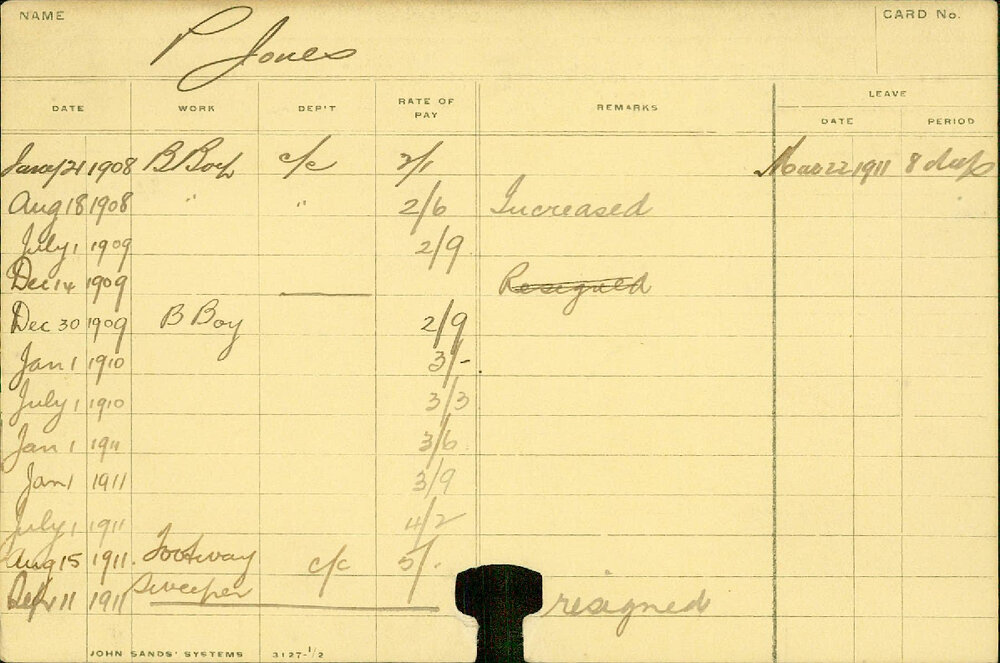 NAME P Jones CARD No.
DATE WORK DEP'T RATE OF PAY REMARKS LEAVE
DATE PERIOD
Jany 21 1908 B Boy c/c 2/1 Mar 22 1911 8 days
Aug 18 1908 " " 2/6 Increased
July 1 1909 2/9
Dec 14 1909 Resigned
Dec 30 1909 B Boy 2/9
Jan 1 1910 3/-
July 1 1910 3/3
Jan 1 1911 3/6
Jan 1 1911 3/9
July 1 1911 4/2
Aug 15 1911. Footway c/c 5/.
Sept 11 1911 Sweeper resigned
JOHN SANDS' SYSTEMS 3127-1/2